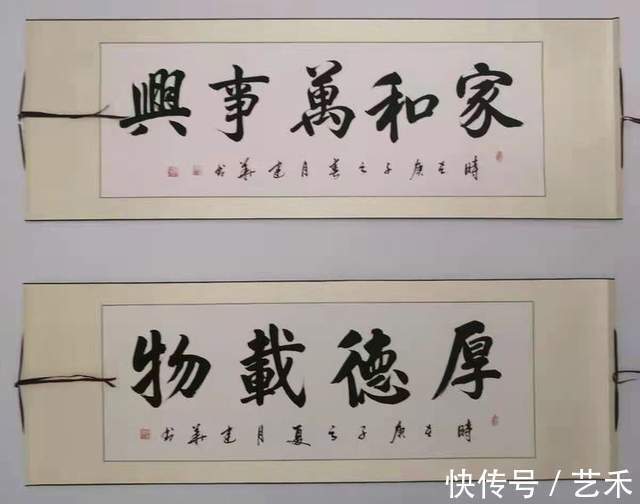 家和萬事興
時在庚子之春月建華书
厚德載物
時在庚子之夏月建華书
快传号 / 艺禾